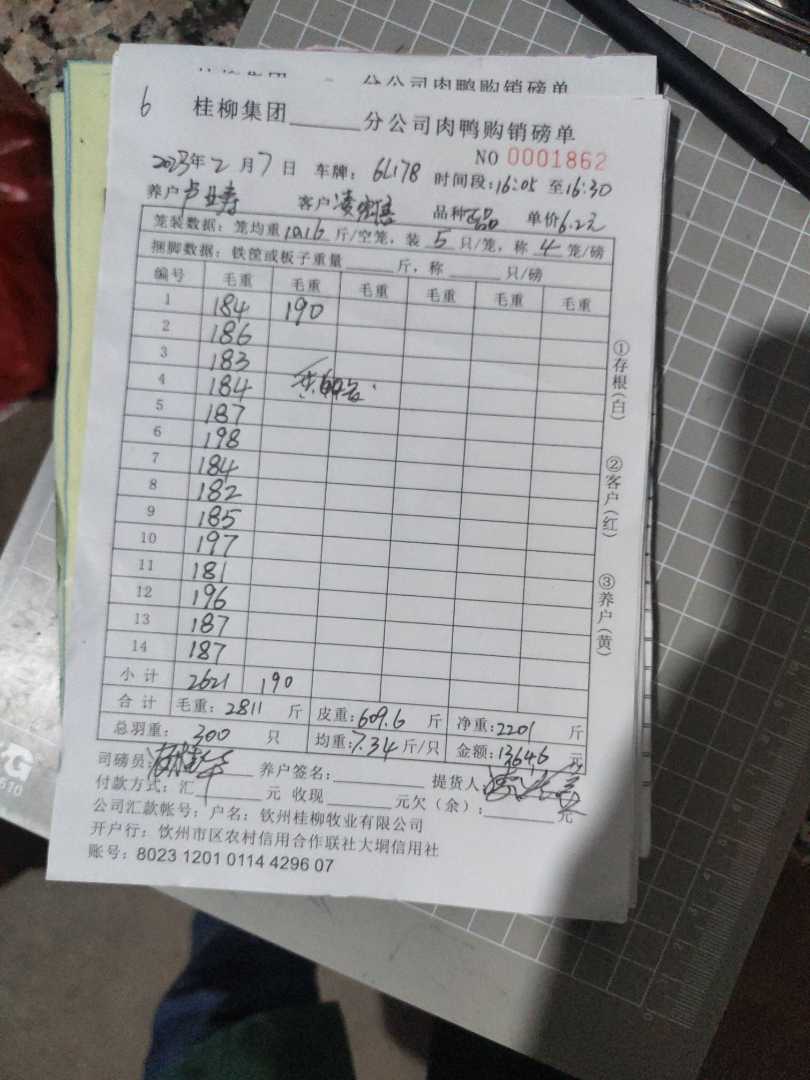 分公司肉鸭购销磅单
6 桂柳集团______分公司肉鸭购销磅单
NO 0001862
2023年2月7日 车牌：6L178 时间段：16:05 至16:30
养户 客户 品种 正品 单价6.2元
笼装数据：笼均重10.16斤/空笼，装5只/笼，称4笼/磅
捆脚数据：铁筐或板子重量______斤，称______只/磅
编号 毛重 毛重 毛重 毛重 毛重 毛重
1 184 190
2 186
3 183
4 184
5 187
6 198
7 184
8 182
9 185
10 197
11 181
12 196
13 187
14 187
小计 2621 190
合计 毛重：2811斤 皮重：609.6斤 净重：2201斤
总羽重：300只 均重：7.34斤/只 金额：13646元
司磅员： 养户签名：______ 提货人：
付款方式：汇______元 收现______元欠（余）：______元
公司汇款帐号：户名：钦州桂柳牧业有限公司
开户行：钦州市区农村信用合作联社大垌信用社
账号：8023 1201 0114 4296 07
①存根（白）
②客户（红）
③养户（黄）